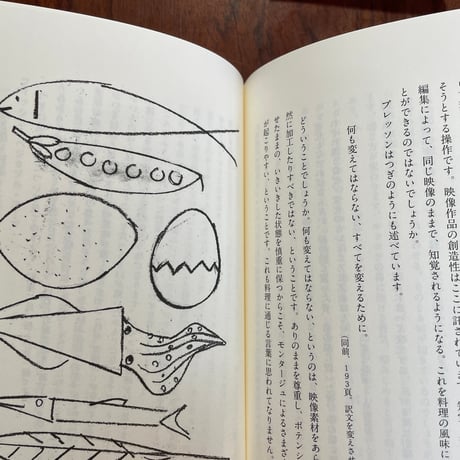 そうとする操作です。映像作品の創造性はここに託されています。
編集によって、同じ映像のままで、知覚されるようになる。これを料理の風味に
とができるのではないでしょうか。
ブレッソンはつぎのようにも述べています。
何も変えてはならない、すべてを変えるために。
(同前、193頁、訳文を変えさせ
どういうことでしょうか。何も変えてはならない、というのは、映像素材をあら
然に加工したりすべきではない、ということです。ありのままを尊重し、ポテンシ
せたままの、いきいきした状態を慎重に保つからこそ、モンタージュによるさまざ
が起こりやすい、ということです。これも料理に通じる言葉に思われてなりません。